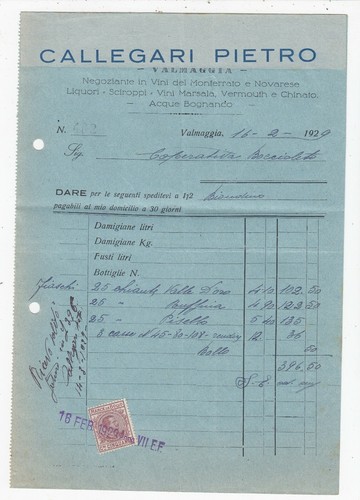 CALLEGARI PIETRO
- VALMAGGIA -
Negoziante in Vini del Monferrato e Novarese
Liquori - Sciroppi - Vini Marsala, Vermouth e Chinato
Acque Bognanco
N.
Valmaggia, 16-2-1929
Sig. Coperativa
DARE per le seguenti speditevi a 1|2
pagabili al mio domicilio a 30 giorni.
Damigiane litri
Damigiane Kg.
Fusti litri
Bottiglie N.
fiaschi 25 chianti Valle D'oro 4.10 102.50
25 " Ruffina 4.90 122.50
25 " 5.40 135
3 casse N 45-80-108 12 36
Bollo 50
396.50
S. E.
18 FEB. 1929 VII E.F.